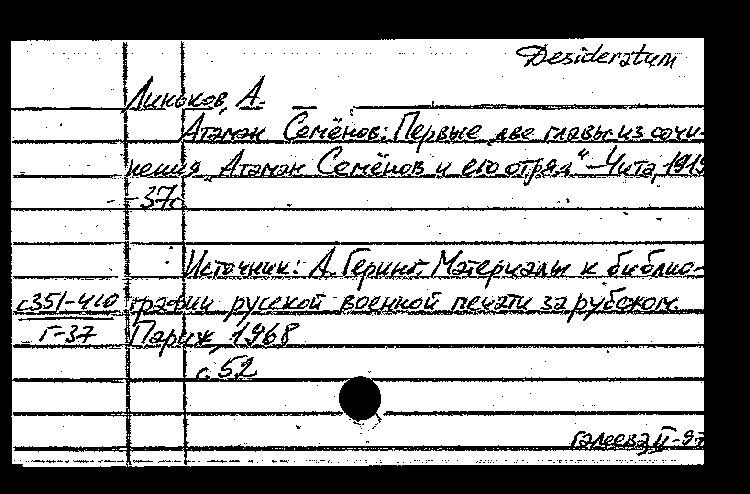 Desideratum
Линьков, А.
Атаман Семёнов: Первые две главы из сочи-
нения „Атаман Семёнов и его отряд“ – Чита, 1919
– 37с
Источник: А. Геринг. Материалы к библио-
с351-410 графии русской военной печати за рубежом.
Г-37 Париж, 1968
с. 52
Галеева II-97